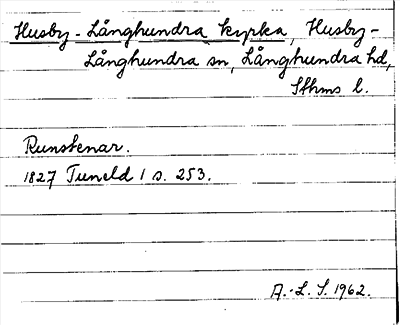 Husby-Långhundra kyrka, Husby-
Långhundra sn, Långhundra hd,
Sthms l.
Runstenar.
1827 Tuneld 1 s. 253.
A.-L. S. 1962.